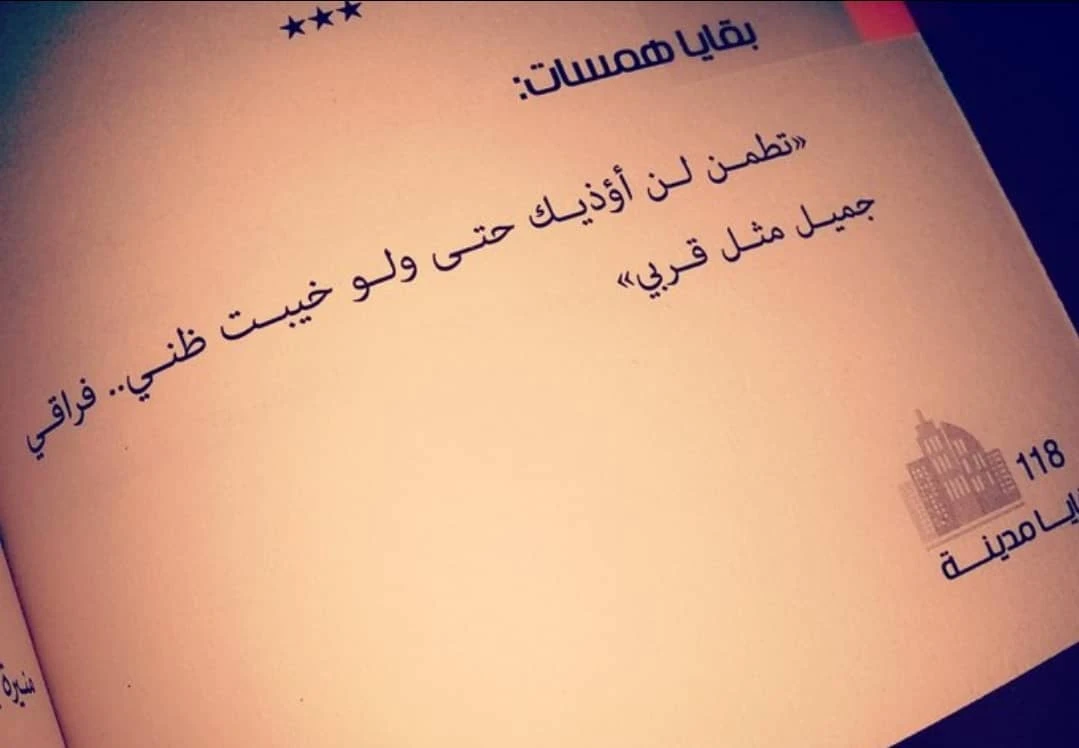 ***
بقايا همسات:
«تطمن لن أؤذيك حتى ولو خيبت ظني.. فراقي
جميل مثل قربي»
118
مدينة